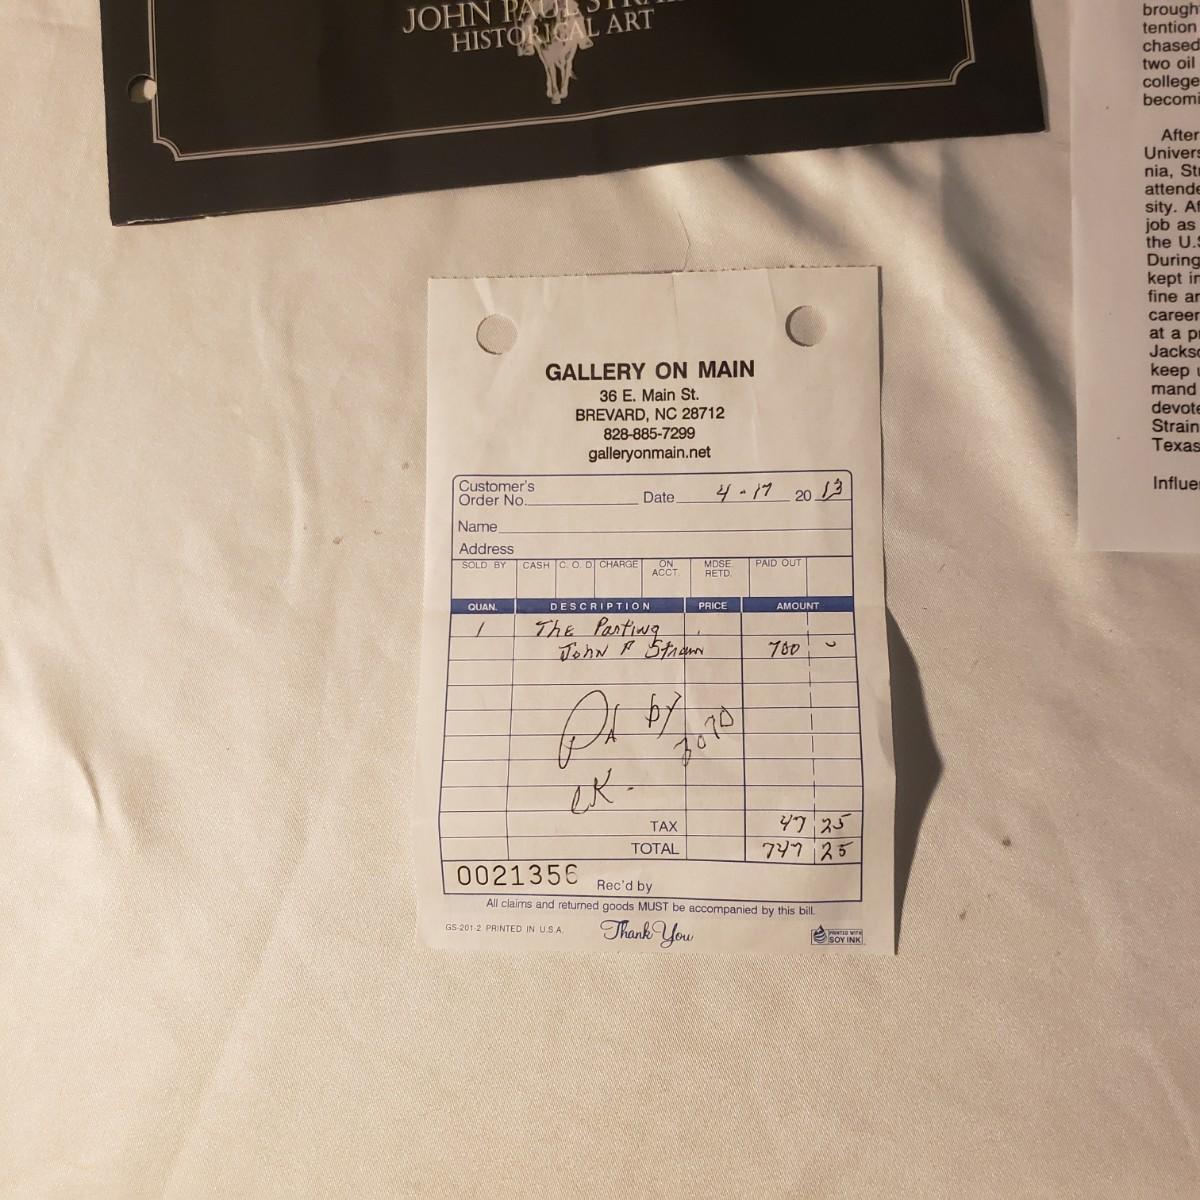 JOHN PAUL
HISTORICAL ART
GALLERY ON MAIN
36 E. Main St.
BREVARD, NC 28712
828-885-7299
galleryonmain.net
Customer's
Order No. Date 4-17 20 13
Name
Address
SOLD BY CASH C. O. D CHARGE ON ACCT. MDSE. RETD. PAID OUT
QUAN. DESCRIPTION PRICE AMOUNT
1 The Parting
John P Strain 700 -
Pd by
ck - 2070
TAX 47 25
TOTAL 747 25
0021356 Rec'd by
All claims and returned goods MUST be accompanied by this bill.
GS-201-2 PRINTED IN U.S.A. Thank You PRINTED WITH SOY INK
brough
tention
chased
two oil
college
becomi
After
Univers
nia, Str
attende
sity. Af
job as
the U.S
During
kept in
fine ar
career
at a pr
Jackso
keep u
mand
devote
Strain
Texas
Influe